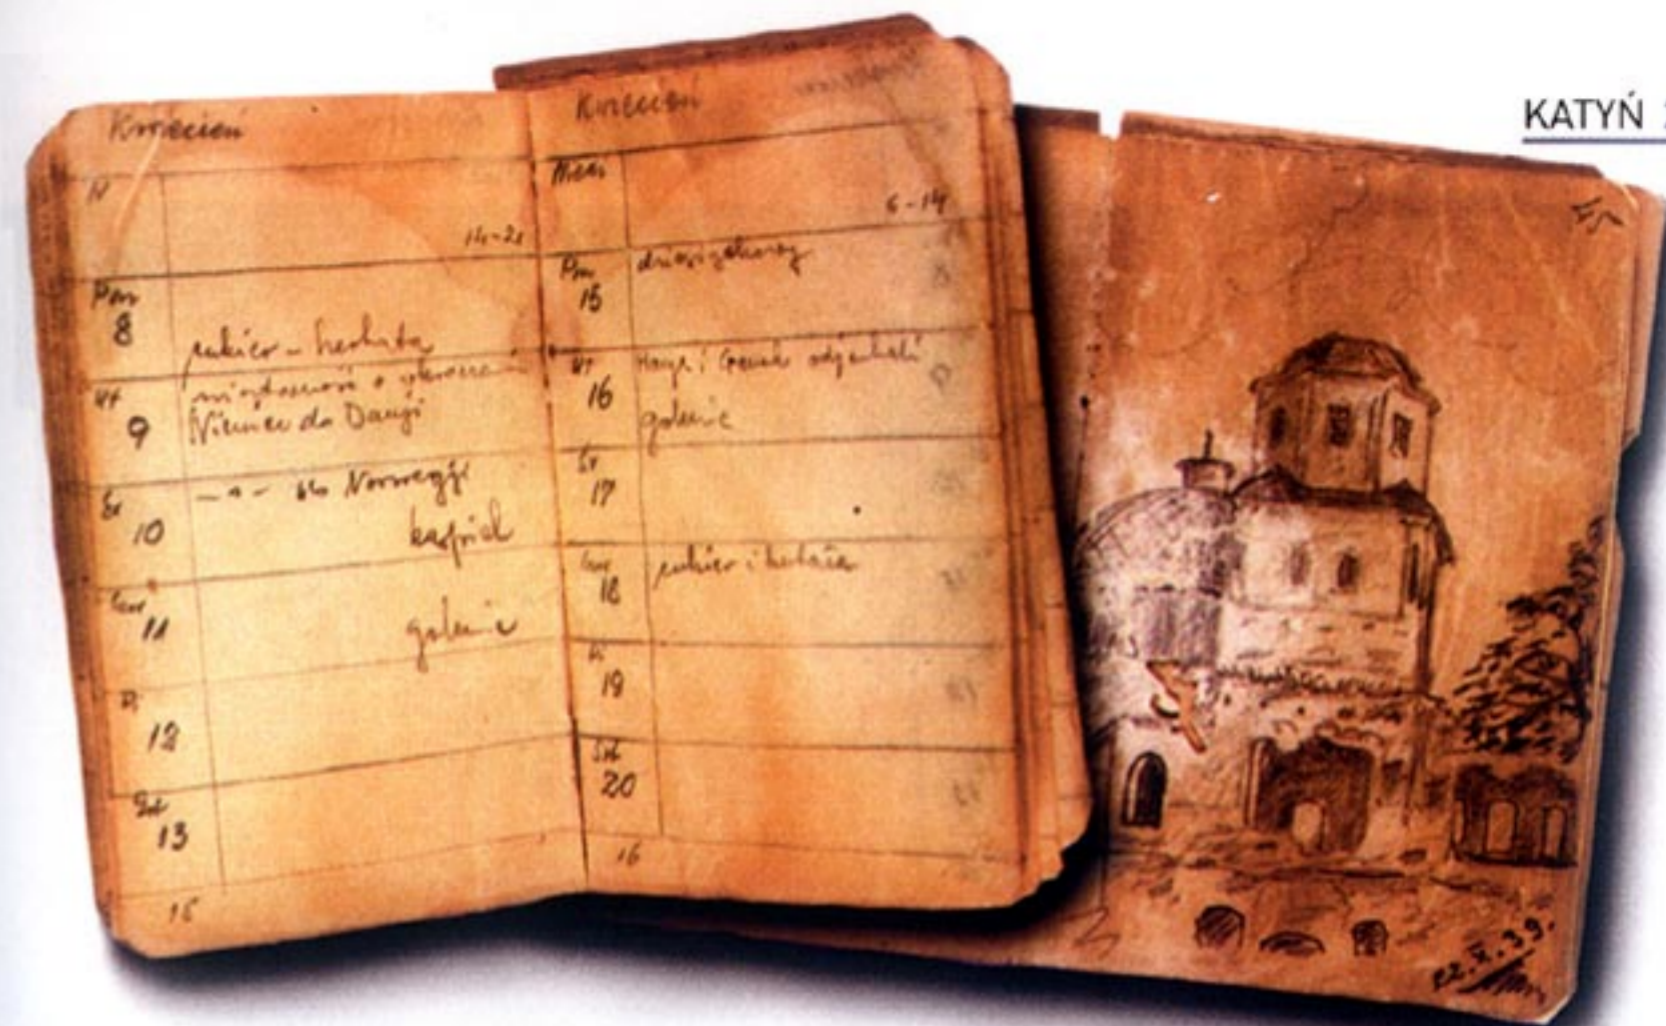 KATYŃ
Kwiecień
N
14-21
Pon
8
cukier - herbata
Wt
9
wiadomość o
Niemców do Danji
Śr
10
- " - do Norwegji
kąpiel
Czw
11
golenie
Pt
12
Sob
13
15
Kwiecień
Niedz
6-14
Pon
15
Wt
16
i odjechali
golenie
Śr
17
Czw
18
cukier i herbata
Pt
19
Sob
20
16
22.X.39.